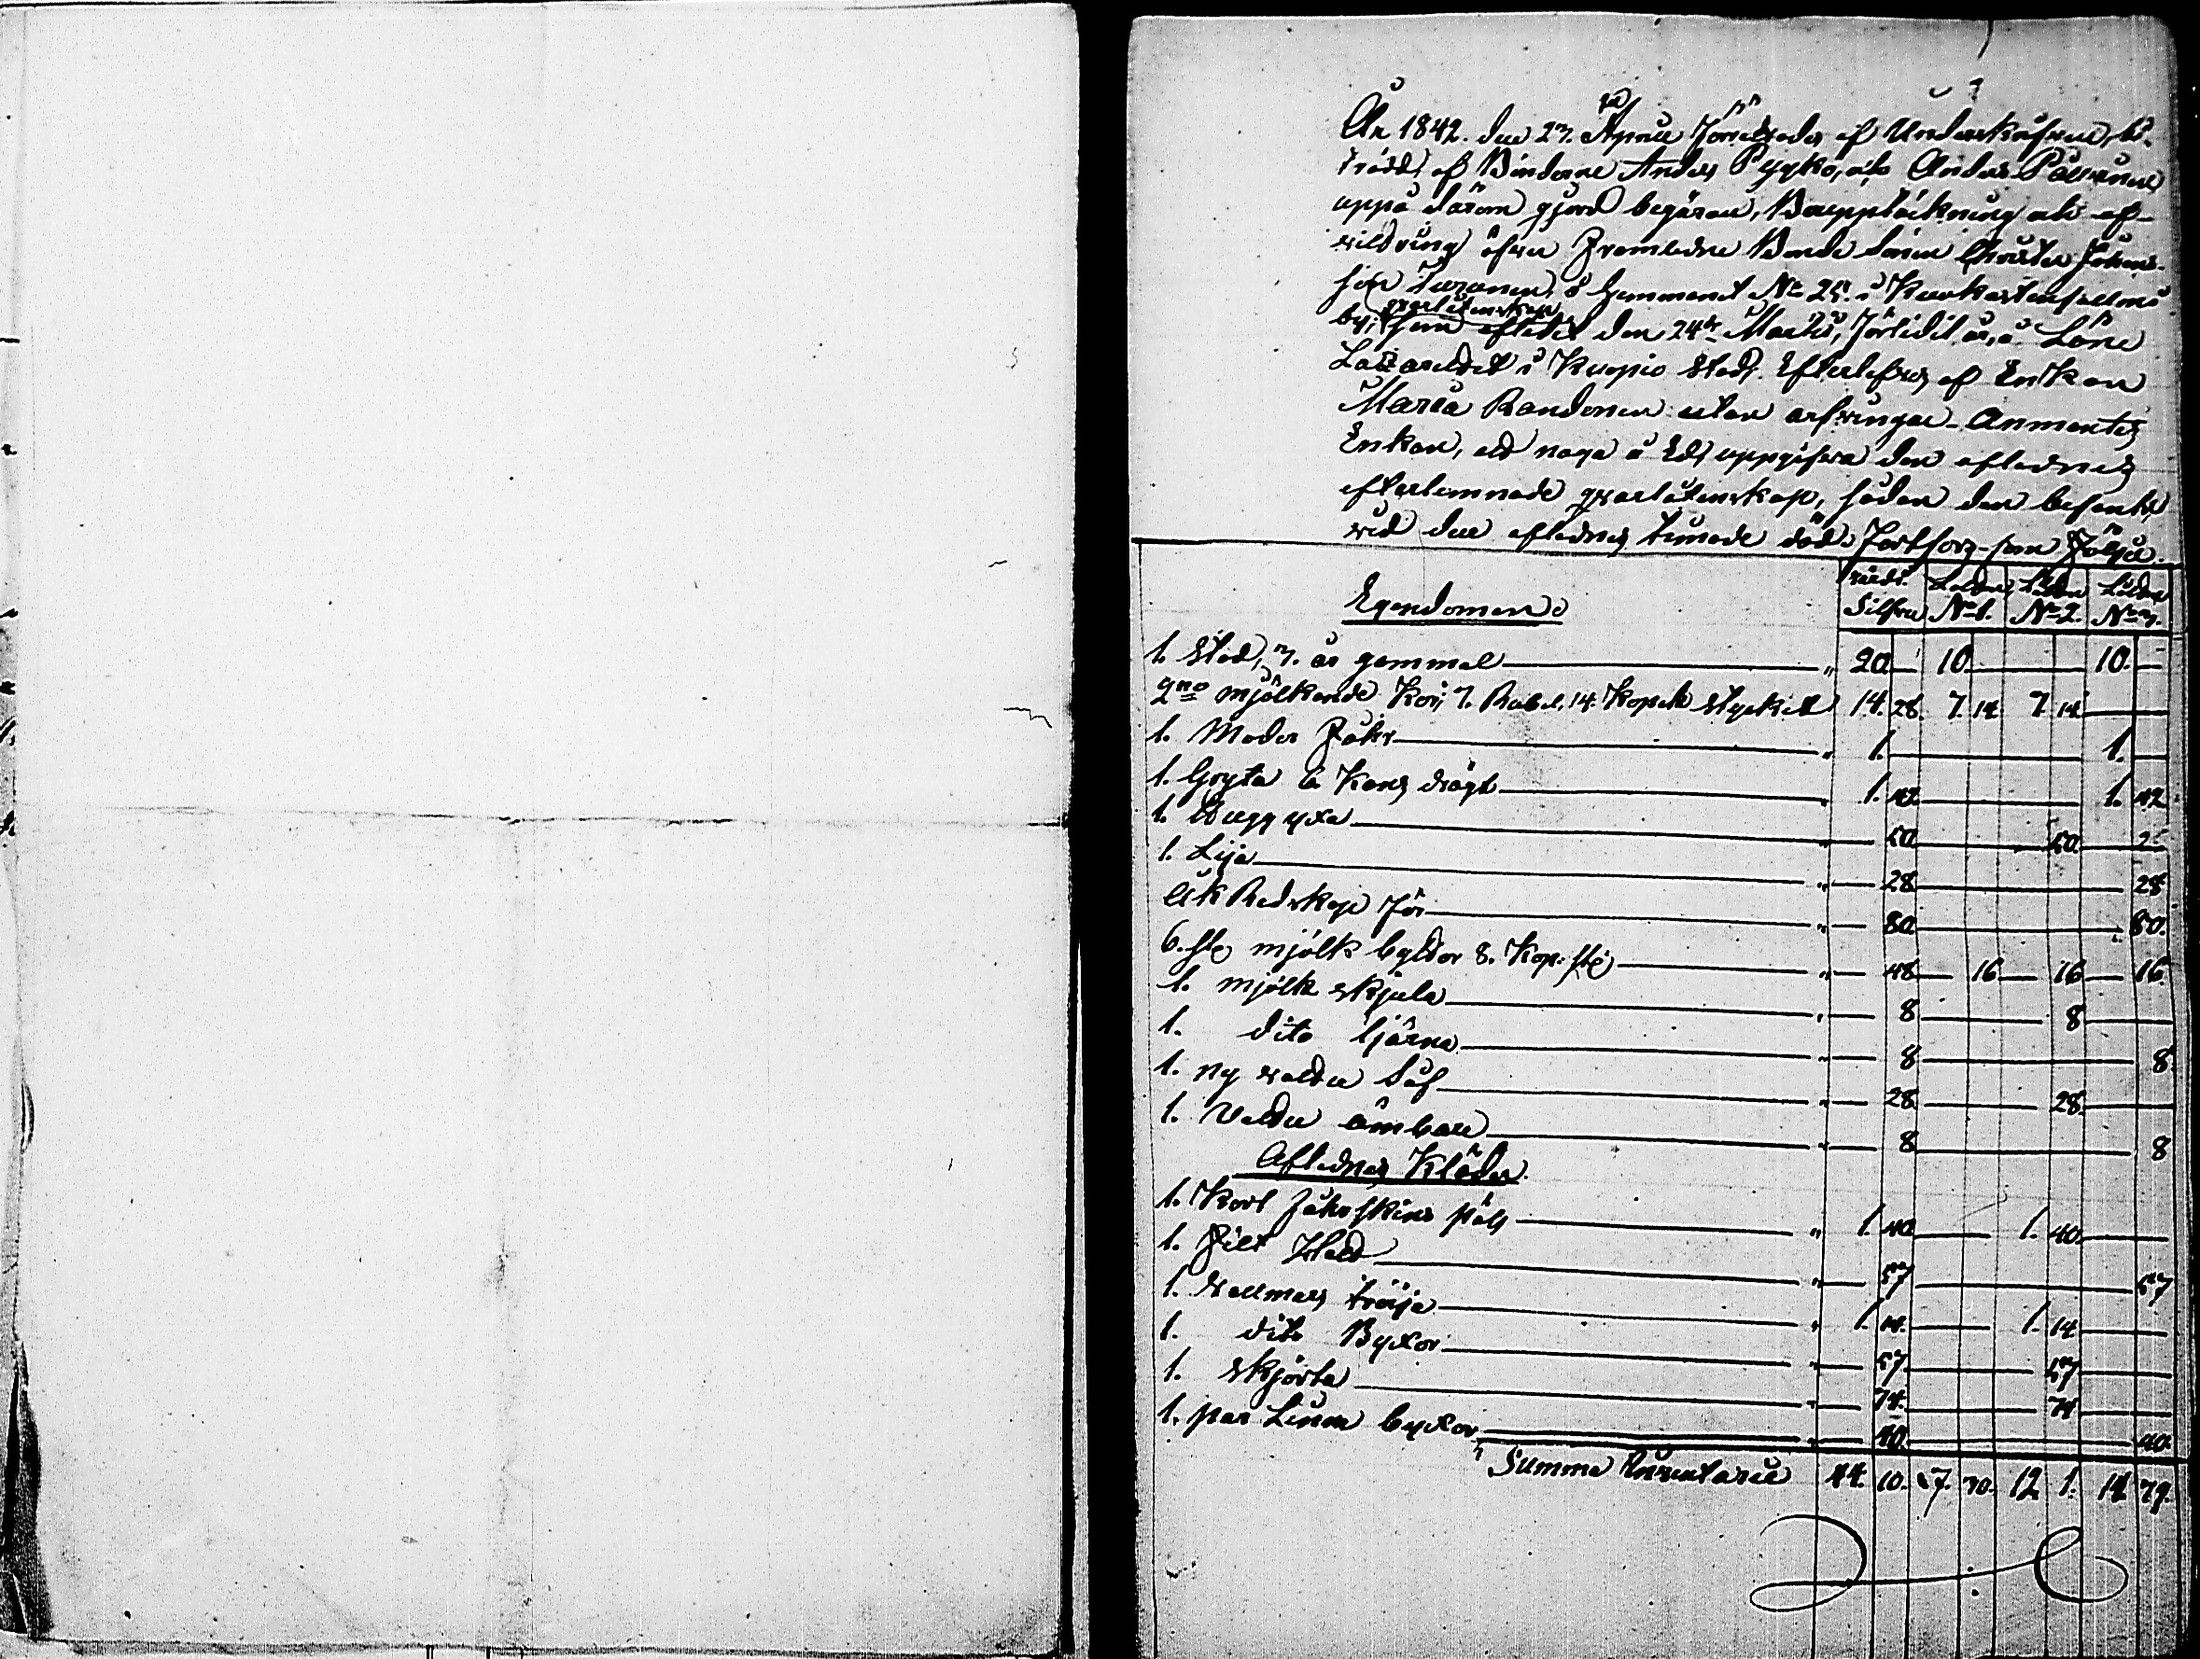 År 1842. den 23. April Förrättades af Underskrefven, bi-
trädd af Bönderne Anders Pyykö, och Anders
uppå därom gjord begäran, Bouppteckning och af-
vildring öfver Framledne Bonde Sonen Christer Johans-
son Turunens å Hemmanet No 25. i
by, qvarlåtenskap som afledit den 24de Martii, förledit år, å Läne
Lazarettet i Kuopio Stad. Efterlefves af Enkan
Maria utan arfvingar. Anmantes
Enkan, att noga å Ed, uppgifva den aflednes
efterlemnade qvarlåtenskap, sådan den befants
vid den aflednes timade död: Fortfors som Följer.
Egendomen värdt. Silfver Lotten No 1. Lotten No 2. Lotten No 3.
1. Stod, 3. år gammal " 20 — 10 — 10. —
2ne mjölkande Kor, 7. Rubel. 14. Kopek stycket 14. 28. 7. 14 7 14
1. Moder Fåhr " 1. — 1. —
1. Gryta 6 Kans drägt " 1. 42 — 1. 42
1. Hugg yxa " — 50 — 50. — 2.
1. Lija " — 28 — 28
Åk Redskap för " — 80 — 80.
6. st. mjölk byttor 8. Kop. st. " — 48 — 16 — 16 — 16.
1. mjölk skjula " — 8 — 8
1. dito tjärna " — 8 — 8.
1. ny vatten Så " — 28 — 28.
1. Vatten ämbare " — 8 — 8
Aflednes Kläder.
1. Kort Fåhrskins päls " 1. 40 — 1. 40.
1. Filt Hatt " — 57 — 57
1. Vallmars tröija " 1. 14. — 1. 14
1. dito Byxor " — 57. — 57
1. skjorta " — 74. — 74
1. par Linne byxor " — 40. — 40.
Summa Inventarii 44. 10. 17. 30. 12 1. 14 79.